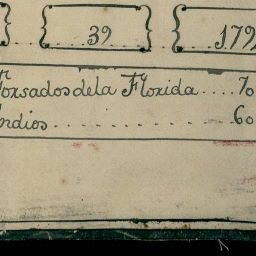 39 179
Forsados dela Florida .... 70
Indios . . . . . . . . . . 60